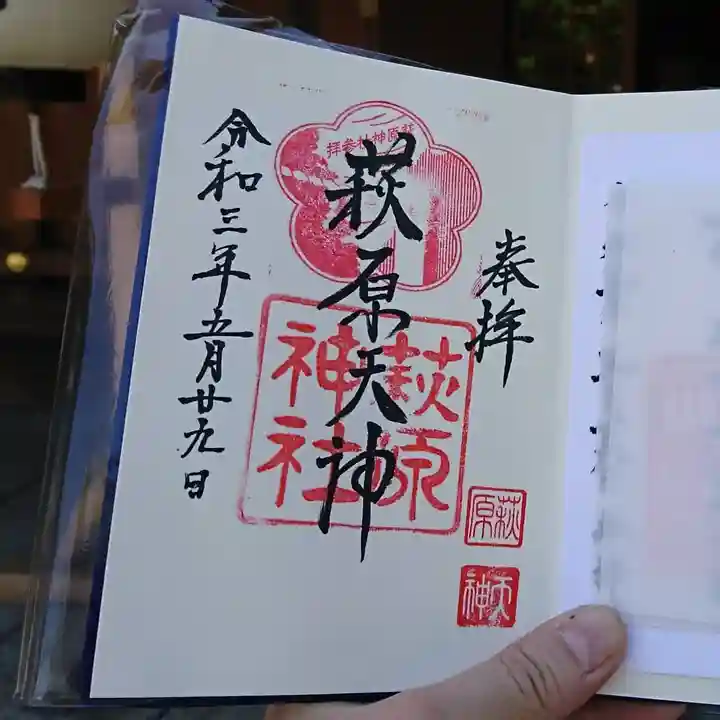 奉拝
萩原神社参拝
萩原天神
萩原神社
令和三年五月廿九日
萩原
天神